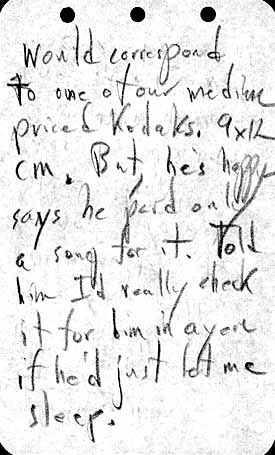 Would correspond
to one of our medium
priced Kodaks. 9x12
cm. But, he's happy
says he paid only
a song for it. Told
him I'd really check
it for him in a year
if he'd just let me
sleep.